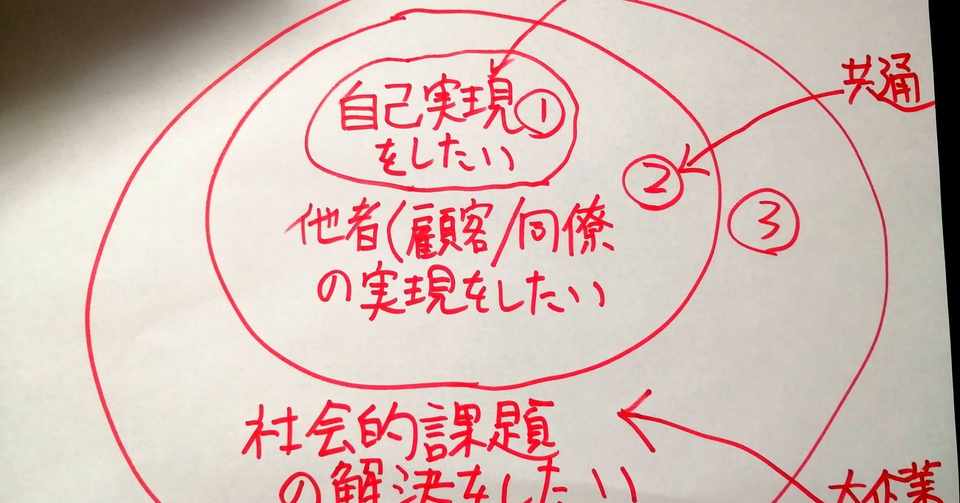 自己実現①
をしたい
共通
②
③
他者(顧客/同僚
の実現をしたい
社会的課題
の解決をしたい
大企業